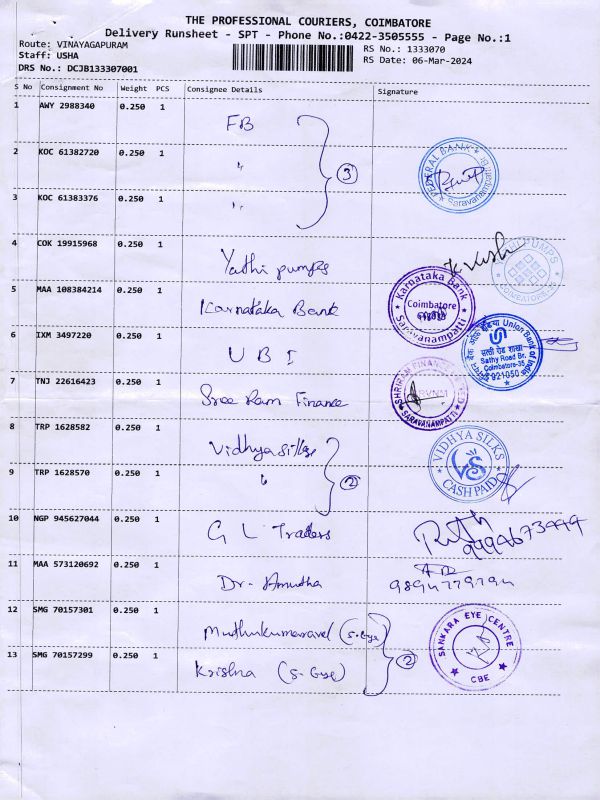 THE PROFESSIONAL COURIERS, COIMBATORE
Delivery Runsheet - SPT - Phone No.:0422-3505555 - Page No.:1
Route: VINAYAGAPURAM
RS No.: 1333070
Staff: USHA
RS Date: 06-Mar-2024
DRS No.: DCJB133307001
S No Consignment No Weight PCS Consignee Details Signature
1 AWY 2988340 0.250 1 FB
2 KOC 61382720 0.250 1 "
FEDERAL BANK
Saravanampatti
3 KOC 61383376 0.250 1 "
3
4 COK 19915968 0.250 1 Yathi pumps
PUMPS
5 MAA 108384214 0.250 1 Karnataka Bank
Karnataka Bank
Coimbatore
Saravanampatti
6 IXM 3497220 0.250 1 U B I
Union Bank of India
सत्ती रोड शाखा
Sathy Road Br.
Coimbatore-35
921050
7 TNJ 22616423 0.250 1 Sree Ram Finance
SHRIRAM FINANCE
SVNM
SARAVANAMPATTI
8 TRP 1628582 0.250 1 Vidhya silks
VIDHYA SILKS
VS
CASH PAID
9 TRP 1628570 0.250 1 "
2
10 NGP 945627044 0.250 1 G L Traders
11 MAA 573120692 0.250 1 Dr. Amutha
12 SMG 70157301 0.250 1 Muthukumaravel (S. Eye)
SANKARA EYE CENTRE
CBE
13 SMG 70157299 0.250 1 Krishna (S. Eye)
2